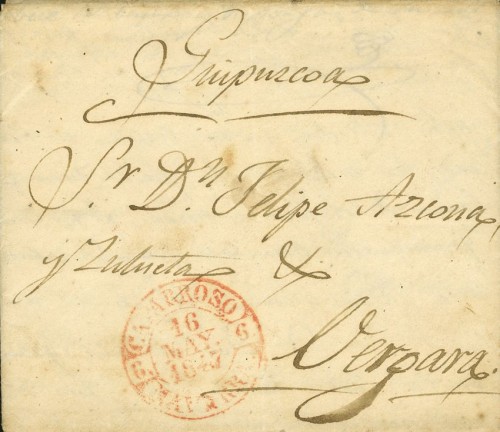 Guipuzcoa
Sr. Dn. Felipe Azcona,
y Zulueta &
Vergara.
CAPARROSO
16
MAY.
1847
NAVARRA